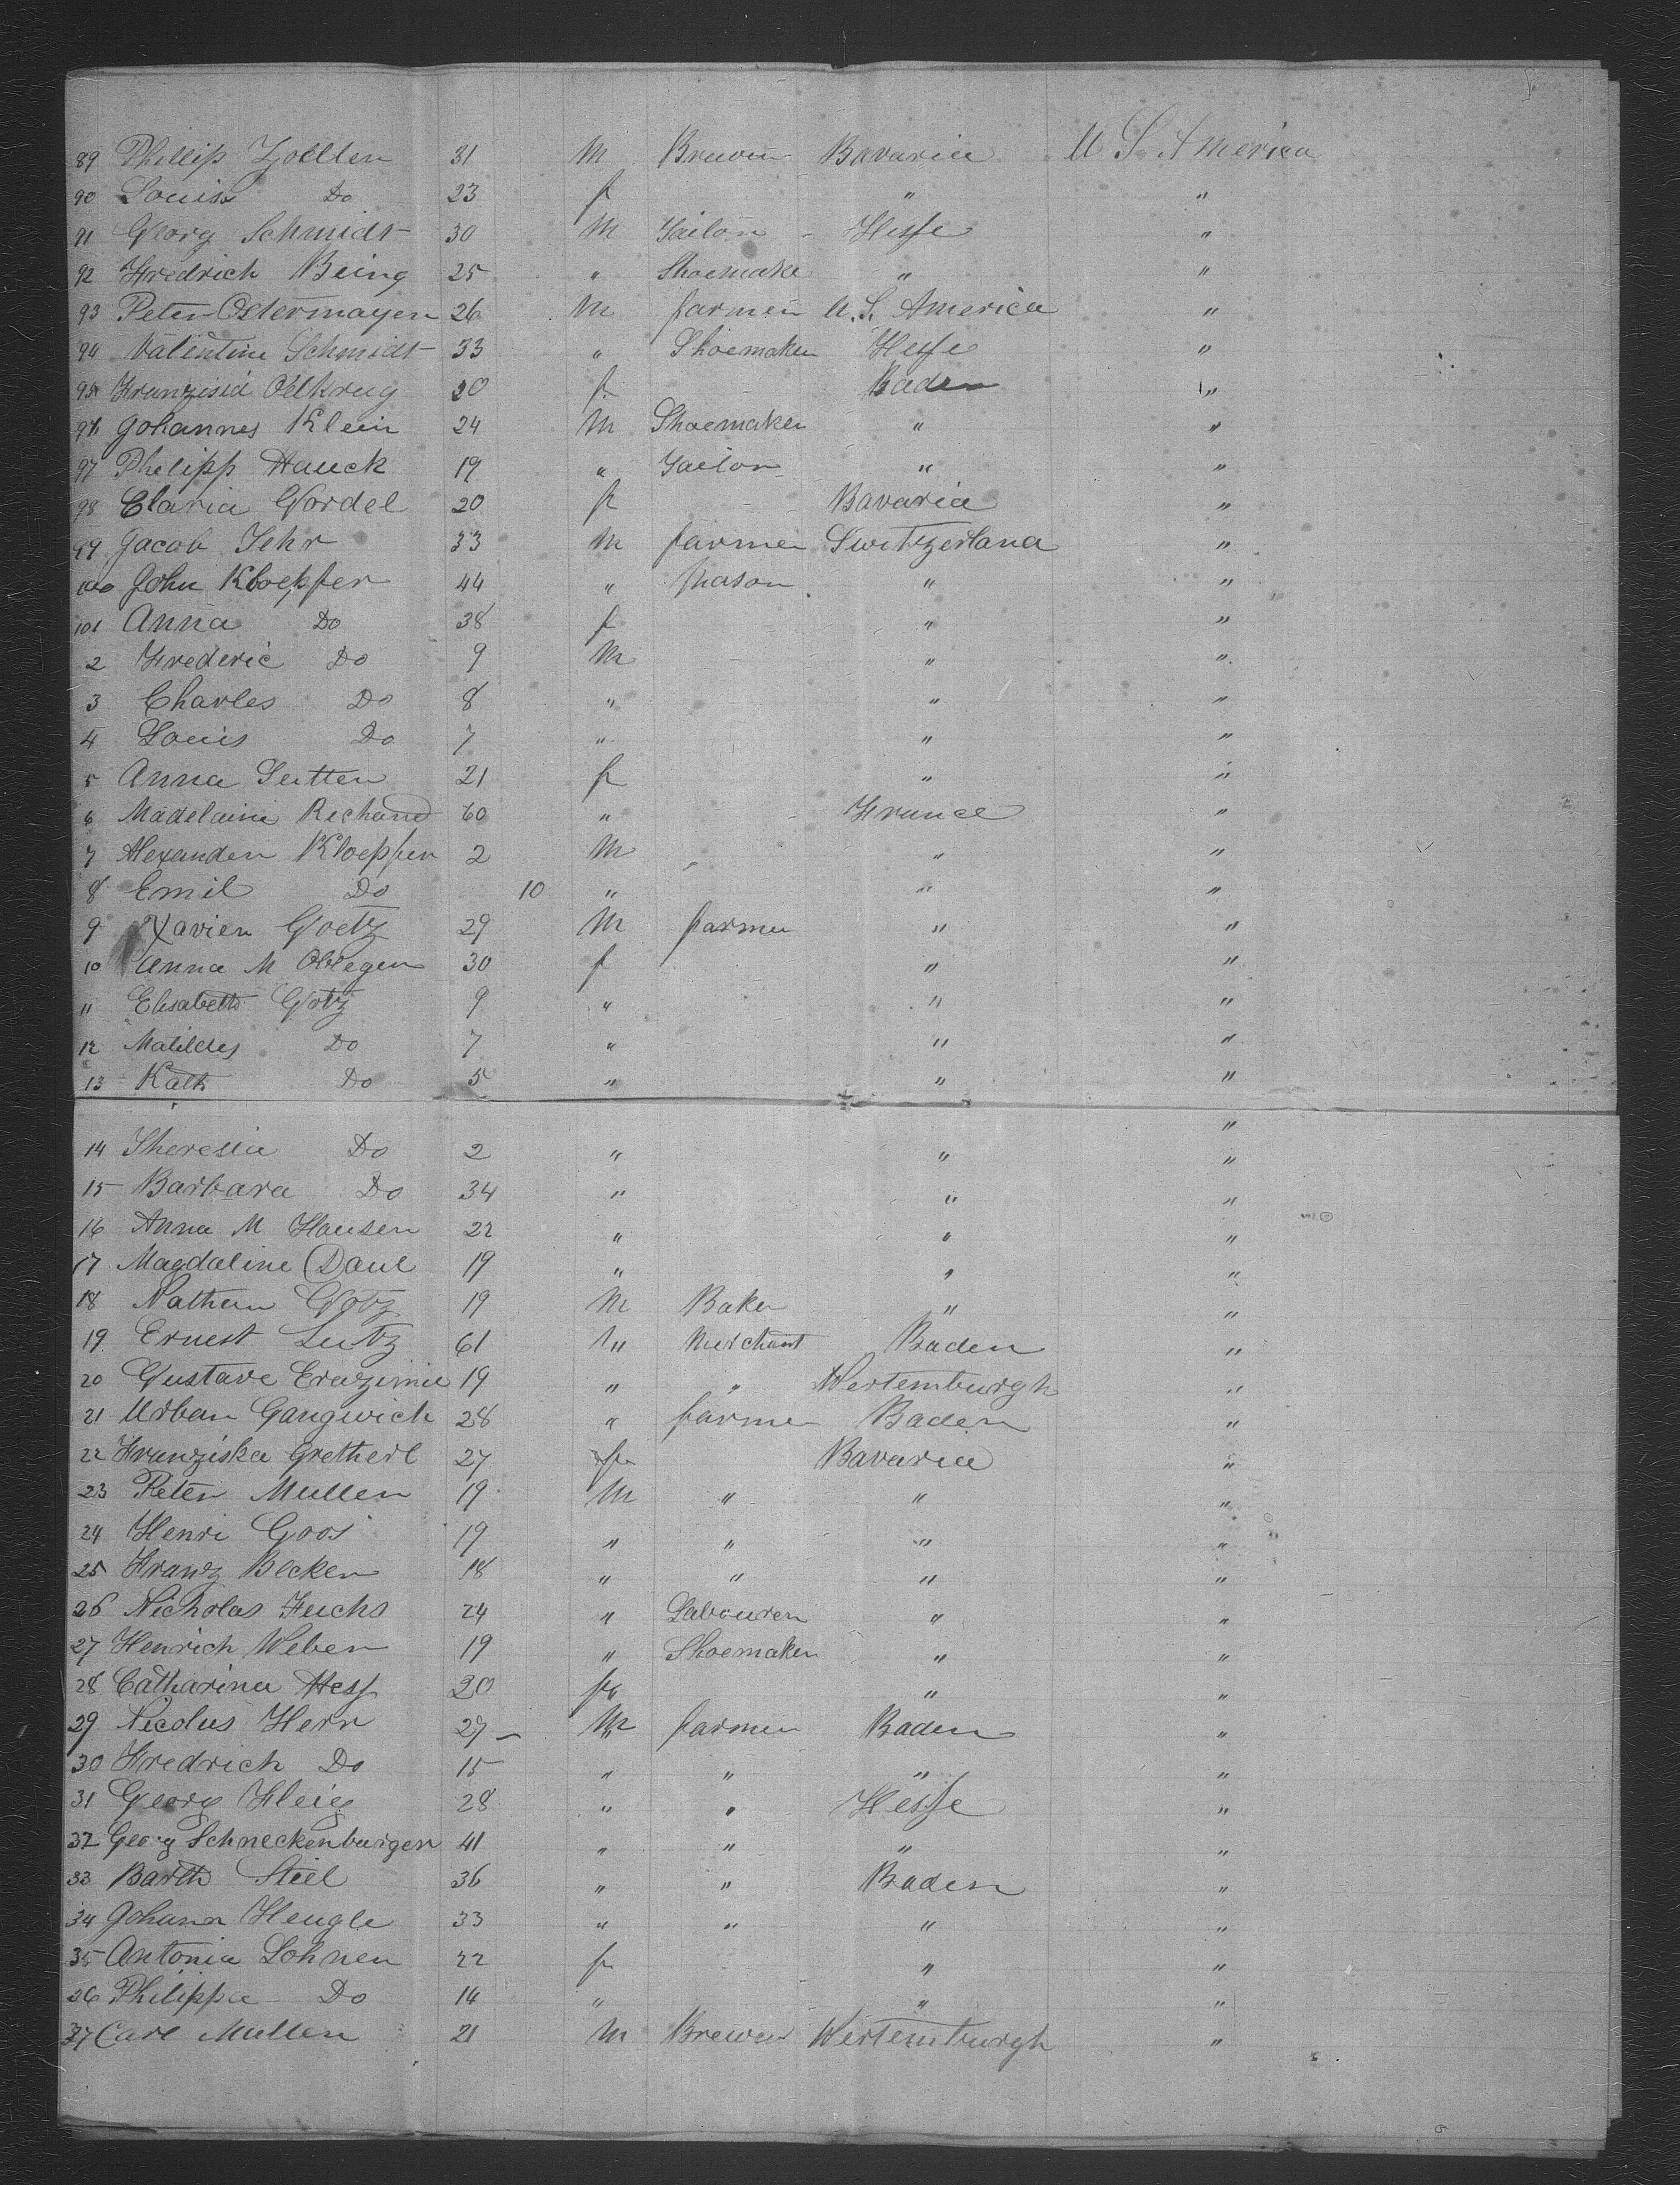 89 Phillip Zoellen 31 M Brewer Bavaria U S America
90 Louisa Do 23 f " "
91 Georg Schmidt 30 M Tailor Hesse "
92 Fredrich Being 25 " Shoemake " "
93 Peter Ostermayer 26 M farmer U. S. America "
94 Valentine Schmidt 33 " Shoemaker Hesse "
95 Franzisia Oelkrug 30 f Baden "
96 Johannes Klein 24 M Shoemaker " "
97 Philipp Hauck 19 " Tailor " "
98 Claria Gordel 20 f Bavaria "
99 Jacob Jehr 33 M farmer Switzerland "
100 John Kloepfer 44 " Mason " "
101 Anna Do 38 f " "
2 Frederic Do 9 M " "
3 Charles Do 8 " " "
4 Louis Do 7 " " "
5 Anna Sutter 21 f " "
6 Madelaine Richard 60 " France "
7 Alexander Kloepfer 2 M " "
8 Emil Do 10 " " "
9 Xavier Goetz 29 M farmer " "
10 Anna M 30 f " "
11 Elisabeth Götz 9 " " "
12 Matildes Do 7 " " "
13 Kath Do 5 " " "
"
14 Theresia Do 2 " " "
15 Barbara Do 34 " " "
16 Anna M Hausen 22 " " "
17 Magdaline Daul 19 " " "
18 Nathan Götz 19 M Baker " "
19 Ernest Lutz 61 " Merchant Baden "
20 Gustave 19 " " Wertemburgh "
21 Urban Gangwich 28 " farmer Baden "
22 Franziska Gretherl 27 f Bavaria "
23 Peter Muller 19 M " " "
24 Henri Goos 19 " " " "
25 Franz Becker 18 " " " "
26 Nicholas Fuchs 24 " Labourer " "
27 Henrich Weber 19 " Shoemaker " "
28 Catharina Hess 20 f " "
29 Nicolus Herr 27 M farmer Baden "
30 Fredrich Do 15 " " " "
31 Georg Fleig 28 " " Hesse "
32 Georg Schneckenburger 41 " " " "
33 Barth Stiel 36 " " Baden "
34 Johann Hengle 33 " " " "
35 Antonia Lohner 22 f " "
36 Philippa Do 14 " " "
37 Carl Muller 21 M Brewer Wertemburgh "